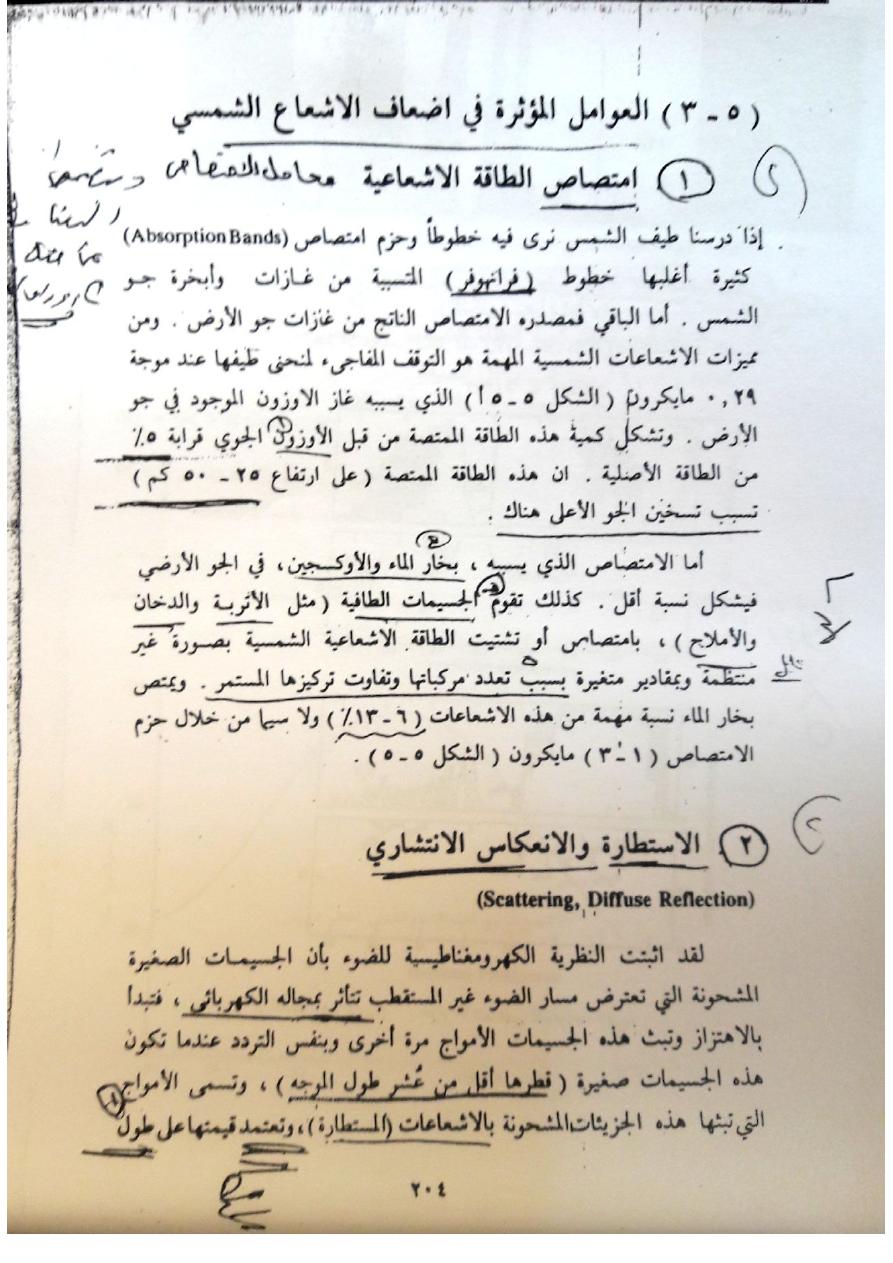 ( ٥ - ٣ ) العوامل المؤثرة في اضعاف الاشعاع الشمسي
١ امتصاص الطاقة الاشعاعية
إذا درسنا طيف الشمس نرى فيه خطوطاً وحزم امتصاص (Absorption Bands)
كثيرة أغلبها خطوط ( فرانهوفر ) المتسببة من غازات وأبخرة جو
الشمس . أما الباقي فمصدره الامتصاص الناتج من غازات جو الأرض . ومن
مميزات الاشعاعات الشمسية المهمة هو التوقف المفاجىء لمنحنى طيفها عند موجة
٠,٢٩ مايكرون ( الشكل ٥ - ٥ أ ) الذي يسببه غاز الاوزون الموجود في جو
الأرض . وتشكل كمية هذه الطاقة الممتصة من قبل الأوزون الجوي قرابة ٥٪
من الطاقة الأصلية . ان هذه الطاقة الممتصة ( على ارتفاع ٢٥ - ٥٠ كم )
تسبب تسخين الجو الأعلى هناك .
أما الامتصاص الذي يسببه ، بخار الماء والأوكسجين ، في الجو الأرضي
فيشكل نسبة أقل . كذلك تقوم الجسيمات الطافية ( مثل الأتربة والدخان
والأملاح ) ، بامتصاص أو تشتيت الطاقة الاشعاعية الشمسية بصورة غير
منتظمة وبمقادير متغيرة بسبب تعدد مركباتها وتفاوت تركيزها المستمر . ويمتص
بخار الماء نسبة مهمة من هذه الاشعاعات ( ٦ - ١٣٪ ) ولا سيما من خلال حزم
الامتصاص ( ١ - ٣ ) مايكرون ( الشكل ٥ - ٥ ) .
٢ الاستطارة والانعكاس الانتشاري
(Scattering, Diffuse Reflection)
لقد اثبتت النظرية الكهرومغناطيسية للضوء بأن الجسيمات الصغيرة
المشحونة التي تعترض مسار الضوء غير المستقطب تتأثر بمجاله الكهربائي ، فتبدأ
بالاهتزاز وتبث هذه الجسيمات الأمواج مرة أخرى وبنفس التردد عندما تكون
هذه الجسيمات صغيرة ( قطرها أقل من عُشر طول الموجه ) ، وتسمى الأمواج
التي تبثها هذه الجزيئات المشحونة بالاشعاعات ( المستطارة ) ، وتعتمد قيمتها على طول
٢٠٤